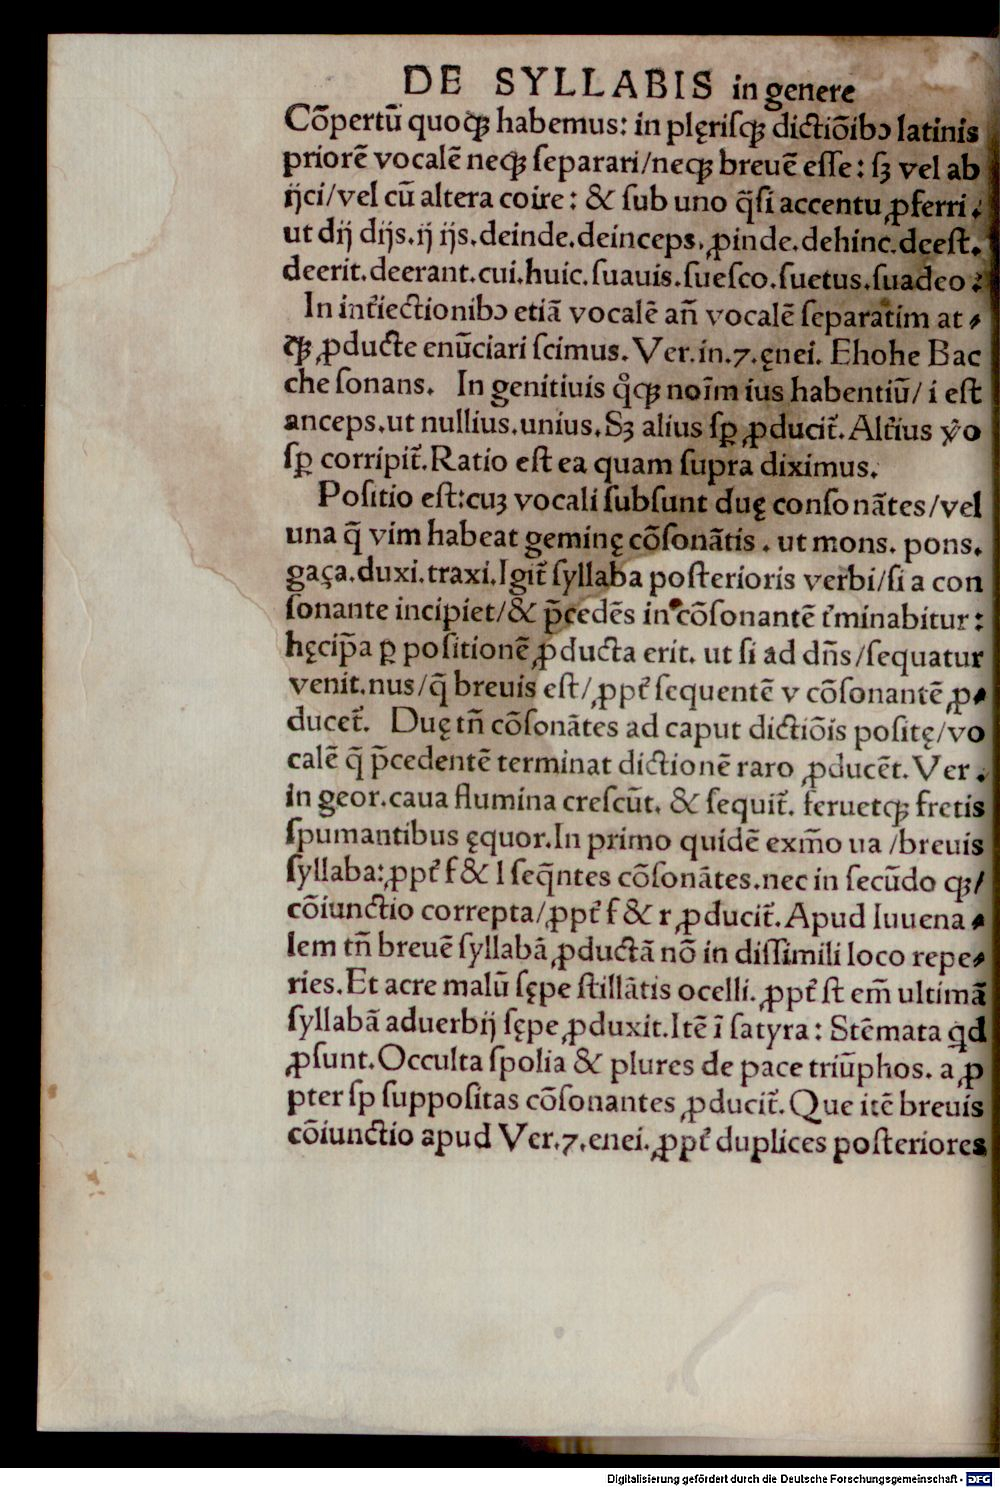 DE SYLLABIS in genere
Cõpertũ quoqꝫ habemus: in plęriſqꝫ dictiõibꝰ latinis
priorẽ vocalẽ neqꝫ ſeparari/neqꝫ breuẽ eſſe: ſꝫ vel ab
ijci/vel cũ altera coire: & ſub uno q̃ſi accentu ꝓferri.
ut dij dijs.ij ijs.deinde.deinceps.ꝓinde.dehinc.deeſt.
deerit.deerant.cui.huic.ſuauis.ſueſco.ſuetus.ſuadeo:
In inťiectionibꝰ etiã vocalẽ añ vocalẽ ſeparatim at⸗
qꝫ ꝓducte enũciari ſcimus. Ver.in.7.ęnei. Ehohe Bac
che ſonans. In genitiuis qͦqꝫ noĩm ius habentiũ/ i eſt
anceps.ut nullius.unius.Sꝫ alius ſꝑ ꝓduciť.Alťius ꝟo
ſꝑ corripiť.Ratio eſt ea quam ſupra diximus.
Poſitio eſt:cuꝫ vocali ſubſunt duę conſonãtes/vel
una q̃ vim habeat geminę cõſonãtis . ut mons. pons.
gaça.duxi.traxi.Igiť ſyllaba poſterioris verbi/ſi a con
ſonante incipiet/& p̃cedẽs in cõſonantẽ ťminabitur:
hęcip̃a ꝑ poſitionẽ ꝓducta erit. ut ſi ad dñs/ſequatur
venit.nus/q̃ breuis eſt/ꝓpť ſequentẽ v cõſonantẽ ꝓ⸗
duceť. Duę tñ cõſonãtes ad caput dictiõis poſitę/vo
calẽ q̃ p̃cedentẽ terminat dictionẽ raro ꝓducẽt. Ver .
in geor.caua flumina creſcũt. & ſequiť. feruetqꝫ fretis
ſpumantibus ęquor.In primo quidẽ exm̃o ua /breuis
ſyllaba:ꝓpť f & l ſeq̃ntes cõſonãtes.nec in ſecũdo qꝫ/
cõiunctio correpta/ꝓpť f & r ꝓduciť.Apud Iuuena⸗
lem tñ breuẽ ſyllabã ꝓductã nõ in diſſimili loco repe⸗
ries.Et acre malũ ſępe ſtillãtis ocelli. ꝓpť ſt em̃ ultimã
ſyllabã aduerbij ſępe ꝓduxit.Itẽ ĩ ſatyra: Stẽmata qͥd
ꝓſunt.Occulta ſpolia & plures de pace triũphos. a ꝓ
pter ſp ſuppoſitas cõſonantes ꝓduciť.Que itẽ breuis
cõiunctio apud Ver.7.enei.ꝓpť duplices poſteriores
Digitalisierung gefördert durch die Deutsche Forschungsgemeinschaft - DFG